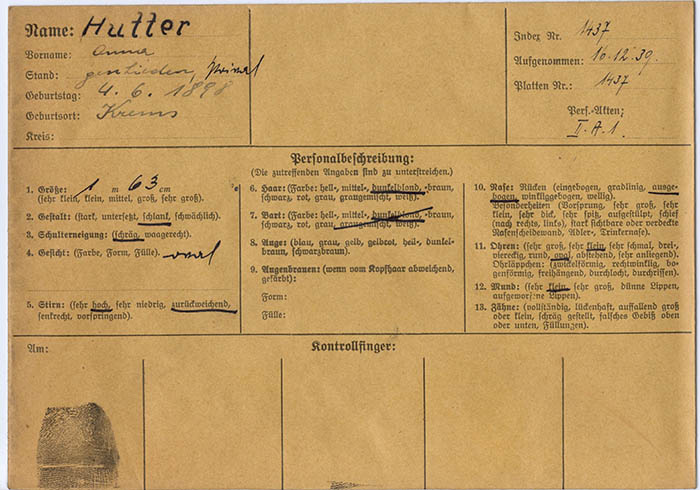 Name: Hutter
Vorname: Anna
Stand: geschieden, Privat
Geburtstag: 4. 6. 1898
Geburtsort: Krems
Kreis:
Index Nr. 1437
Aufgenommen: 16.12.39.
Platten Nr.: 1437
Pers.-Akten:
II-A-1.
Personalbeschreibung:
(Die zutreffenden Angaben sind zu unterstreichen.)
1. Größe: 1 m 63 cm
(sehr klein, klein, mittel, groß, sehr groß).
2. Gestalt: (stark, untersetzt, schlank, schwächlich).
3. Schulterneigung: (schräg, waagerecht).
4. Gesicht: (Farbe, Form, Fülle). oval
5. Stirn: (sehr hoch, sehr niedrig, zurückweichend,
senkrecht, vorspringend).
6. Haar: (Farbe: hell-, mittel-, dunkelblond, -braun,
schwarz, rot, grau, graugemischt, weiß).
7. Bart: (Farbe: hell-, mittel-, dunkelblond, -braun,
schwarz, rot, grau, graugemischt, weiß).
8. Auge: (blau, grau, gelb, gelbrot, hell-, dunkel-
braun, schwarzbraun).
9. Augenbrauen: (wenn vom Kopfhaar abweichend,
gefärbt):
Form:
Fülle:
10. Nase: Rücken (eingebogen, gradlinig, ausge-
bogen, winkliggebogen, wellig).
Besonderheiten (Vorsprung, sehr groß, sehr
klein, sehr dick, sehr spitz, aufgestülpt, schief
(nach rechts, links), stark sichtbare oder verdeckte
Nasenscheidewand, Adler-, Trinkernase).
11. Ohren: (sehr groß, sehr klein, sehr schmal, drei-,
viereckig, rund, oval, abstehend, sehr anliegend).
Ohrläppchen: (zwickelförmig, rechtwinklig, bo-
genförmig, freihängend, durchlocht, durchrissen).
12. Mund: (sehr klein, sehr groß, dünne Lippen,
aufgeworfene Lippen).
13. Zähne: (vollständig, lückenhaft, auffallend groß
oder klein, schräg gestellt, falsches Gebiß oben
oder unten, Füllungen).
Am:
Kontrollfinger: